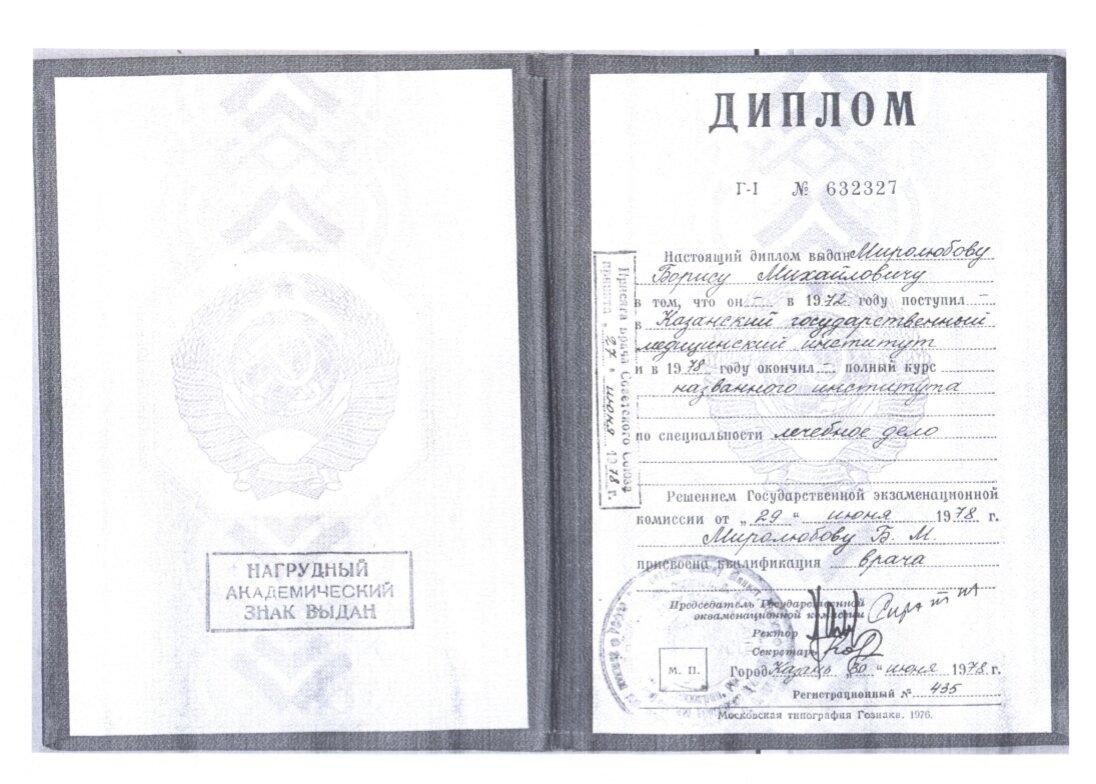 НАГРУДНЫЙ
АКАДЕМИЧЕСКИЙ
ЗНАК ВЫДАН
ДИПЛОМ
Г-I № 632327
Присяга врача Советского Союза
принята „27“ июня 1978 г.
Настоящий диплом выдан Миролюбову
Борису Михайловичу
в том, что он – в 1972 году поступил –
в Казанский государственный
медицинский институт
и в 1978 году окончил – полный курс
названного института
по специальности лечебное дело
Решением Государственной экзаменационной
комиссии от „29“ июня 1978 г.
Миролюбову Б. М.
присвоена квалификация врача
Председатель Государственной
экзаменационной комиссии
Ректор
Секретарь
М. П.
Город Казань „30“ июня 1978 г.
Регистрационный № 435
Московская типография Гознака. 1976.